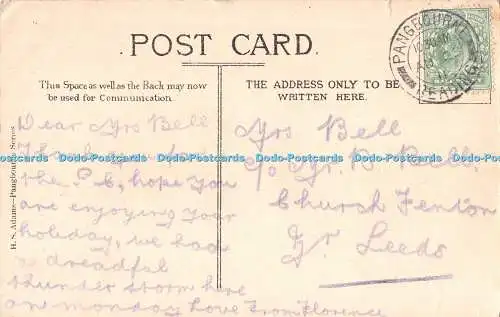 POST CARD.
This Space as well as the Back may now
be used for Communication.
THE ADDRESS ONLY TO BE
WRITTEN HERE.
PANGBOURNE
READING
H. S. Adams—Pangbourne Series
Dear Mrs Bell
Thank you for
the P.C, hope you
are enjoying your
holiday, we had
a dreadful
thunder storm here
on monday Love From Florence
Mrs Bell
c/o Mr. B. Bell.
Church Fenton
Nr Leeds
www.postcardfinder.co.uk